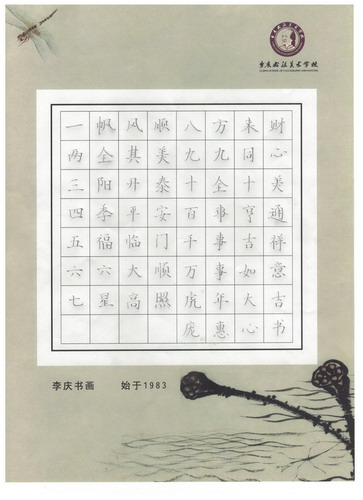 一帆风顺八方来财
两全其美九九同心
三阳开泰十全十美
四季平安百事亨通
五福临门千事吉祥
六六大顺万事如意
七星高照虎年大吉
庞惠心书
李庆书画 始于1983